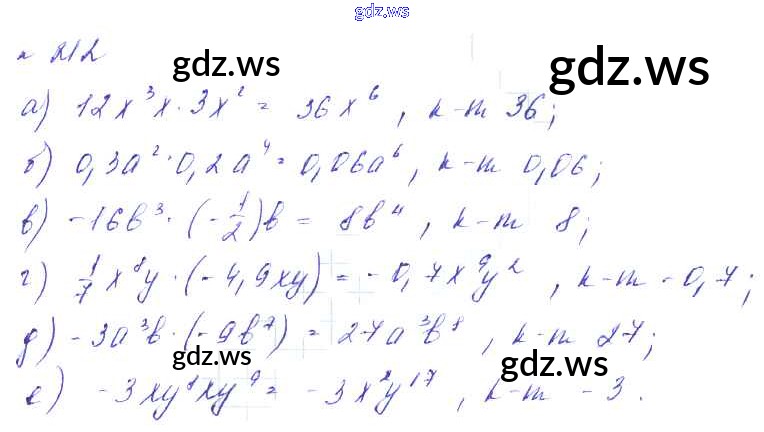 gdz.ws
№ 212
gdz.ws
gdz.ws
а) 12x³x · 3x² = 36x⁶, к-т 36;
б) 0,3a² · 0,2a⁴ = 0,06a⁶, к-т 0,06;
в) -16b³ · (-1/2)b = 8b⁴, к-т 8;
г) 1/7 x⁸y · (-4,9xy) = -0,7x⁹y², к-т -0,7;
д) -3a³b · (-9b⁷) = 27a³b⁸, к-т 27;
gdz.ws
gdz.ws
е) -3xy⁸xy⁹ = -3x²y¹⁷, к-т -3.